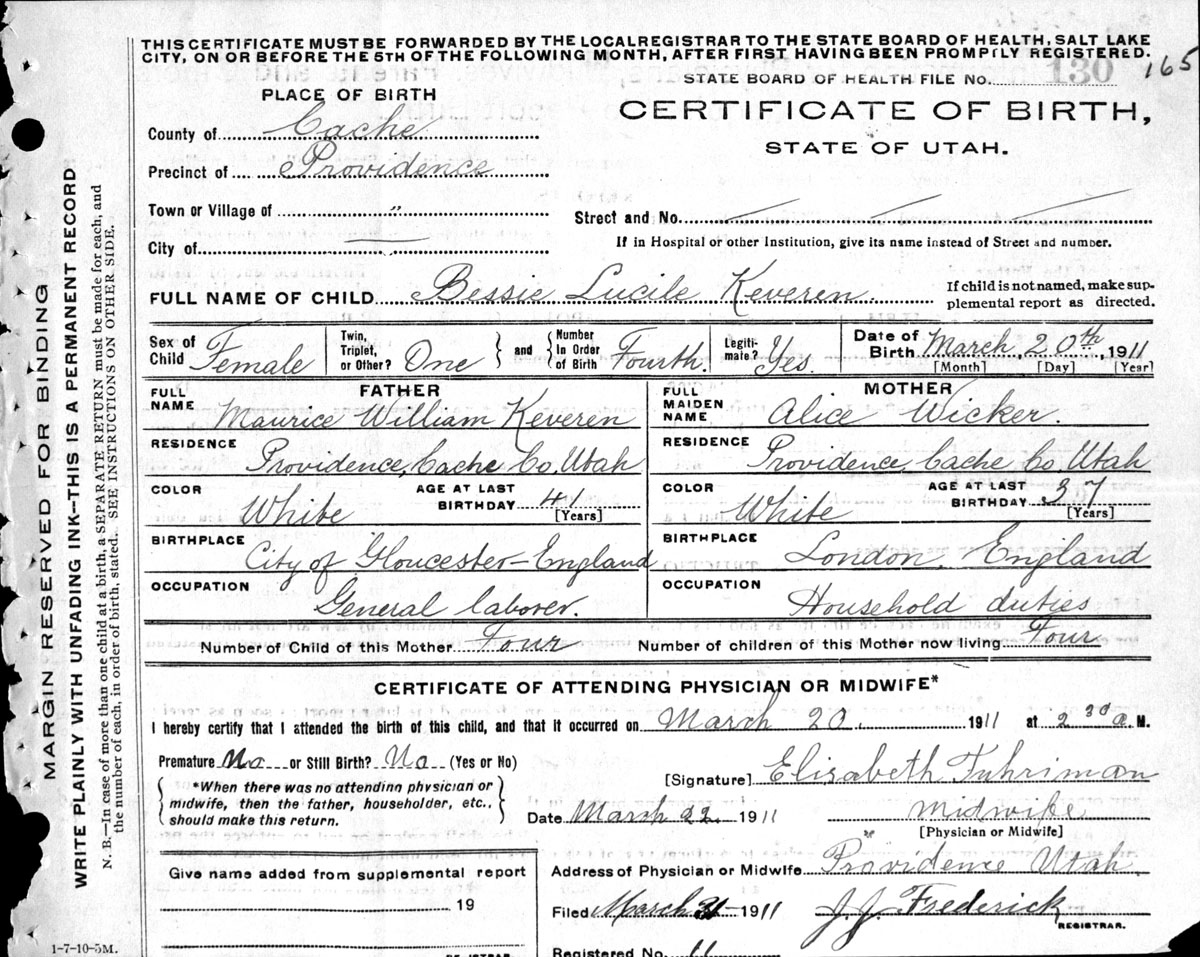 THIS CERTIFICATE MUST BE FORWARDED BY THE LOCAL REGISTRAR TO THE STATE BOARD OF HEALTH, SALT LAKE
CITY, ON OR BEFORE THE 5TH OF THE FOLLOWING MONTH, AFTER FIRST HAVING BEEN PROMPTLY REGISTERED.
165
STATE BOARD OF HEALTH FILE NO. 130
PLACE OF BIRTH
CERTIFICATE OF BIRTH,
STATE OF UTAH.
County of Cache
Precinct of Providence
Town or Village of "
Street and No.
City of
If in Hospital or other Institution, give its name instead of Street and number.
FULL NAME OF CHILD Bessie Lucile Keveren
If child is not named, make sup-
plemental report as directed.
Sex of Child Female
Twin, Triplet, or Other? One
and
Number In Order of Birth Fourth.
Legiti-mate? Yes.
Date of Birth March, 20th, 1911
[Month] [Day] [Year]
FATHER
FULL NAME Maurice William Keveren
RESIDENCE Providence, Cache Co, Utah
COLOR White
AGE AT LAST BIRTHDAY 41
[Years]
BIRTHPLACE City of Gloucester-England
OCCUPATION General laborer.
MOTHER
FULL MAIDEN NAME Alice Wicker.
RESIDENCE Providence, Cache Co, Utah
COLOR White
AGE AT LAST BIRTHDAY 37
[Years]
BIRTHPLACE London, England
OCCUPATION Household duties
Number of Child of this Mother Four
Number of children of this Mother now living Four
CERTIFICATE OF ATTENDING PHYSICIAN OR MIDWIFE*
I hereby certify that I attended the birth of this child, and that it occurred on March 20. 1911 at 2 30 a M.
Premature No or Still Birth? No (Yes or No)
*When there was no attending physician or
midwife, then the father, householder, etc.,
should make this return.
[Signature] Elisabeth Fuhriman
Date March 22. 1911
midwife
[Physician or Midwife]
Address of Physician or Midwife Providence Utah.
Filed March 31-1911
J. J. Frederick
REGISTRAR.
Registered No. 11
Give name added from supplemental report
19
REGISTRAR
1-7-10-5M.
MARGIN RESERVED FOR BINDING
WRITE PLAINLY WITH UNFADING INK—THIS IS A PERMANENT RECORD
N. B.—In case of more than one child at a birth, a SEPARATE RETURN must be made for each, and
the number of each, in order of birth, stated. SEE INSTRUCTIONS ON OTHER SIDE.